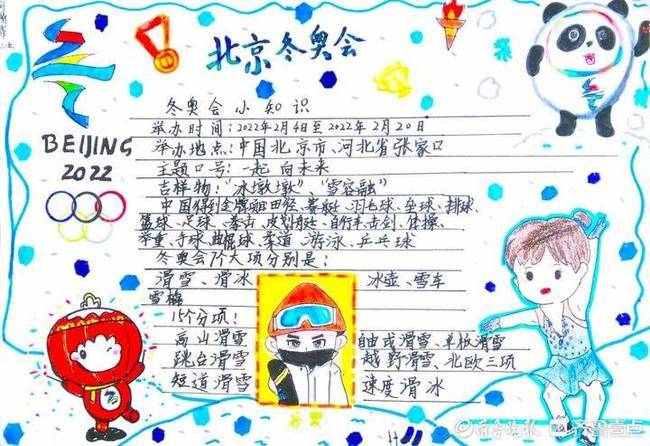 北京冬奥会
BEIJING
2022
冬奥会小知识
举办时间:2022年2月4日至2022年2月20日
举办地点:中国北京市、河北省张家口
主题口号:一起向未来
吉祥物:“冰墩墩”、“雪容融”
中国得到金牌项目田径、赛艇、羽毛球、垒球、排球
篮球、足球、拳击、皮划艇、自行车、击剑、体操、
举重、手球、曲棍球、柔道、游泳、乒乓球
冬奥会7个大项分别是:
滑雪、滑冰 冰壶、雪车
雪橇
15个分项:
高山滑雪 自由式滑雪、单板滑雪
跳台滑雪 越野滑雪、北欧三项
短道滑雪 速度滑冰